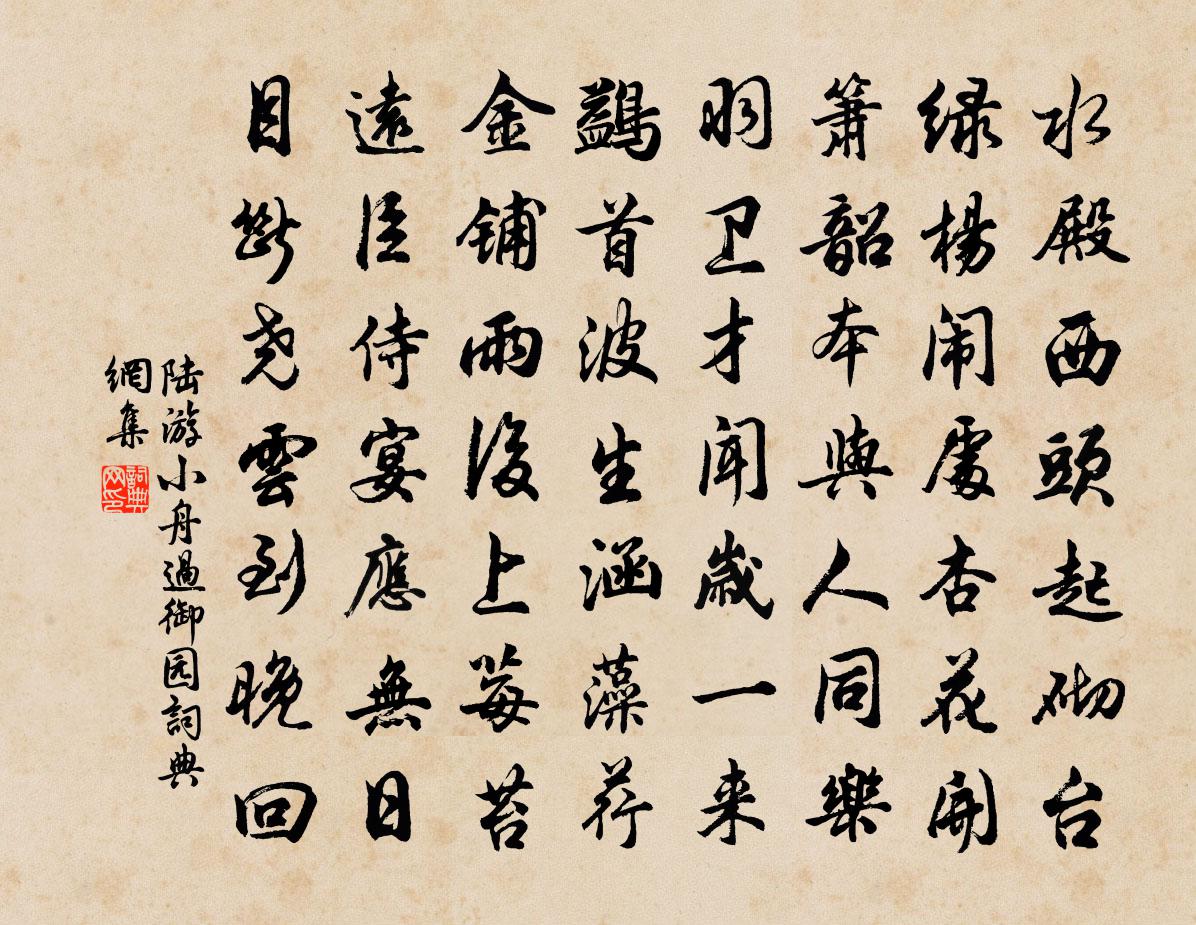 水殿西頭起砌台
绿楊闹處杏花開
簫韶本與人同樂
羽卫才聞歲一来
鷁首波生涵藻荇
金铺雨後上莓苔
遠臣侍宴應無日
目斷尧雲到晚回
陆游小舟過御园詞典
網集
詞典
网印